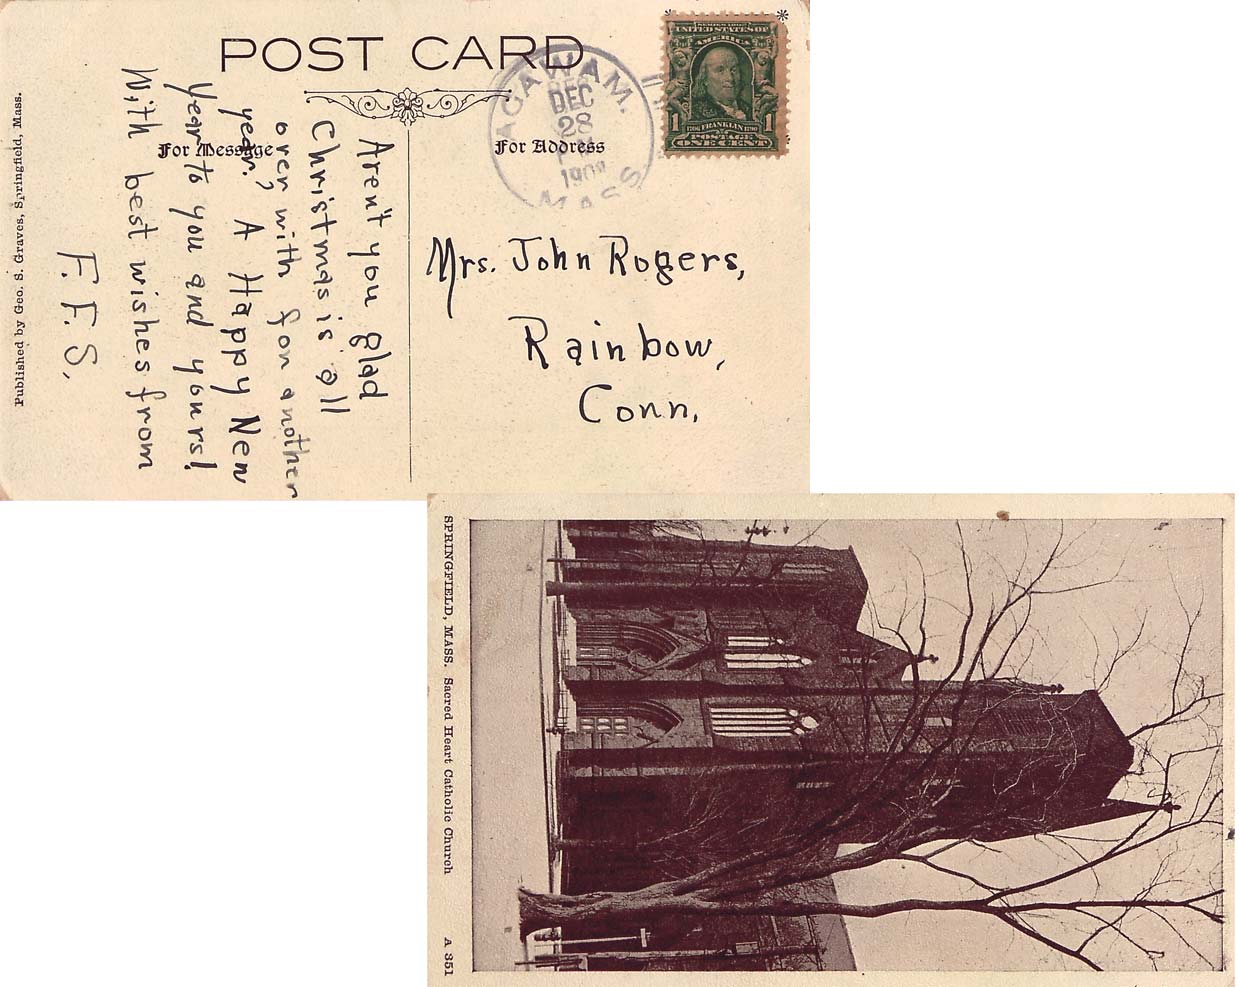 POST CARD
For Message
For Address
AGAWAM.
DEC
28
MASS.
SERIES 1902
UNITED STATES OF
AMERICA
1 1706 FRANKLIN 1790 1
POSTAGE
ONE CENT
Aren't you glad
Christmas is all
over with for another
year? A Happy New
Year to you and yours!
With best wishes from
F. F. S.
Mrs. John Rogers,
Rainbow,
Conn.
Published by Geo. S. Graves, Springfield, Mass.
SPRINGFIELD, MASS. Sacred Heart Catholic Church A 351